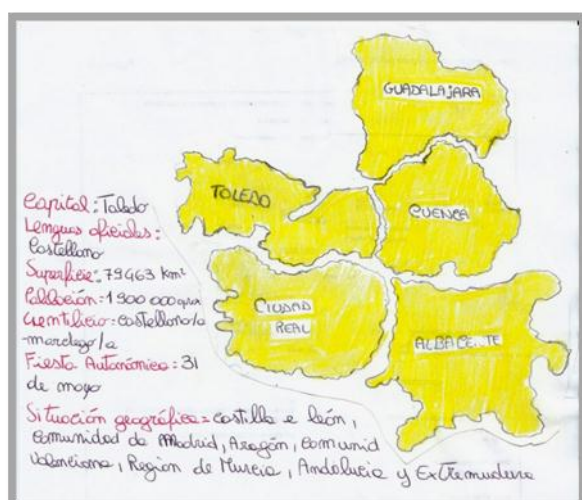 GUADALAJARA
TOLEDO
CUENCA
CIUDAD
REAL
ALBACETE
Capital: Toledo
Lenguas oficiales:
Castellano
Superficie: 79463 km²
Población: 1900 000
Gentilicio: castellano/a
-manchego/a
Fiesta Autonómica: 31
de mayo
Situación geográfica: Castilla e León,
Comunidad de Madrid, Aragón, Comunid
Valenciana, Región de Murcia, Andalucía y Extremadura